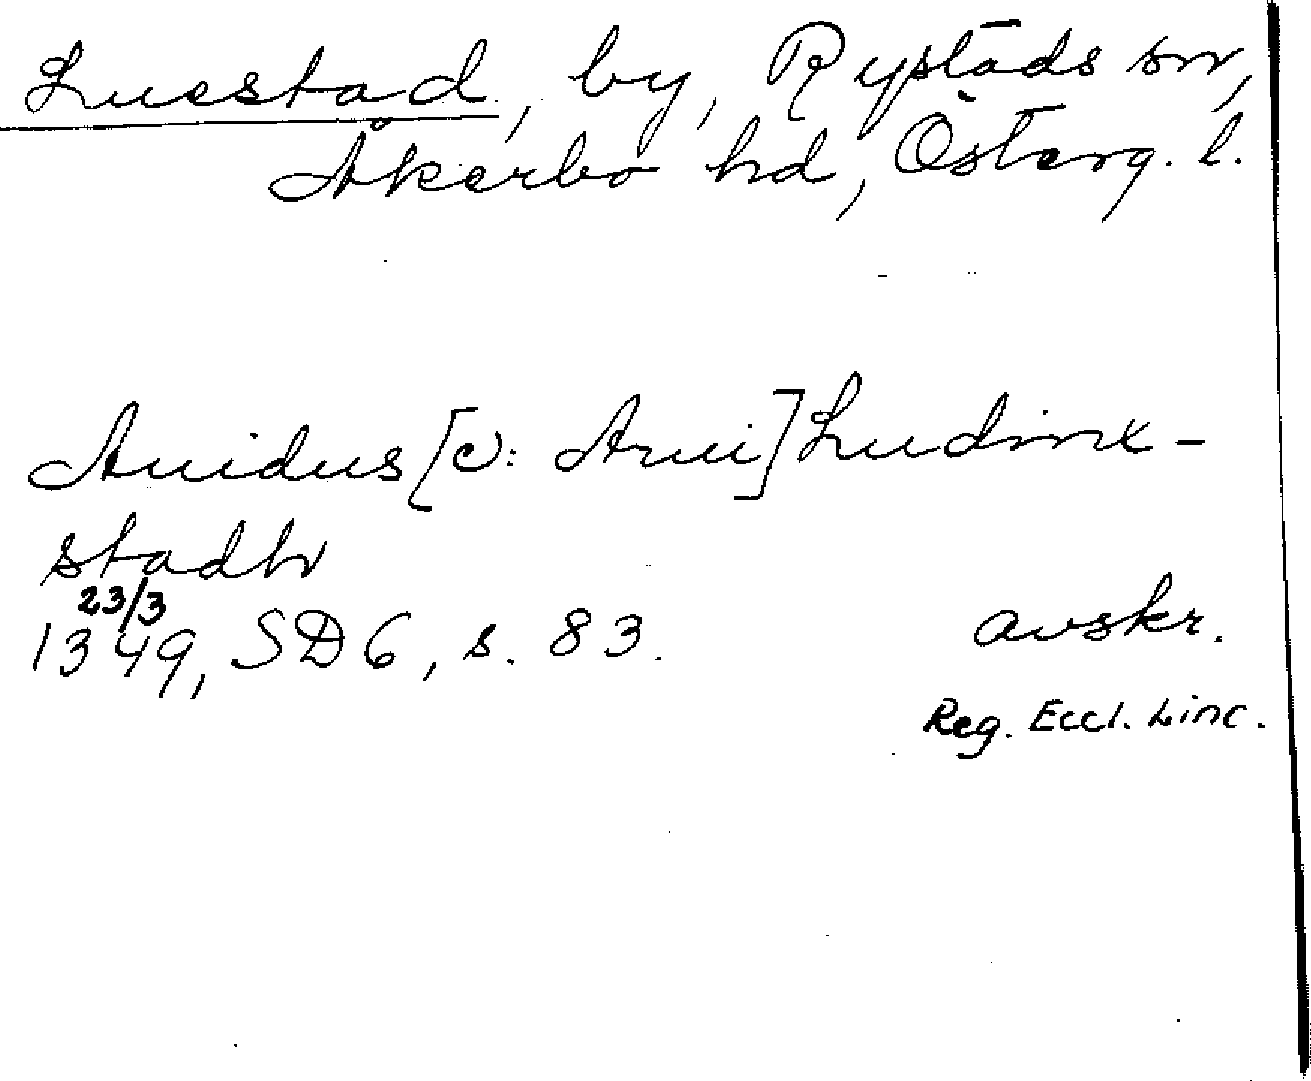 Luestad, by, Rystads sn,
Åkerbo hd, Österg. l.
Auidus [v: Arui] Ludinx-
stadhr
23/3
1349, SD 6, s. 83. avskr.
Reg. Eccl. Linc.